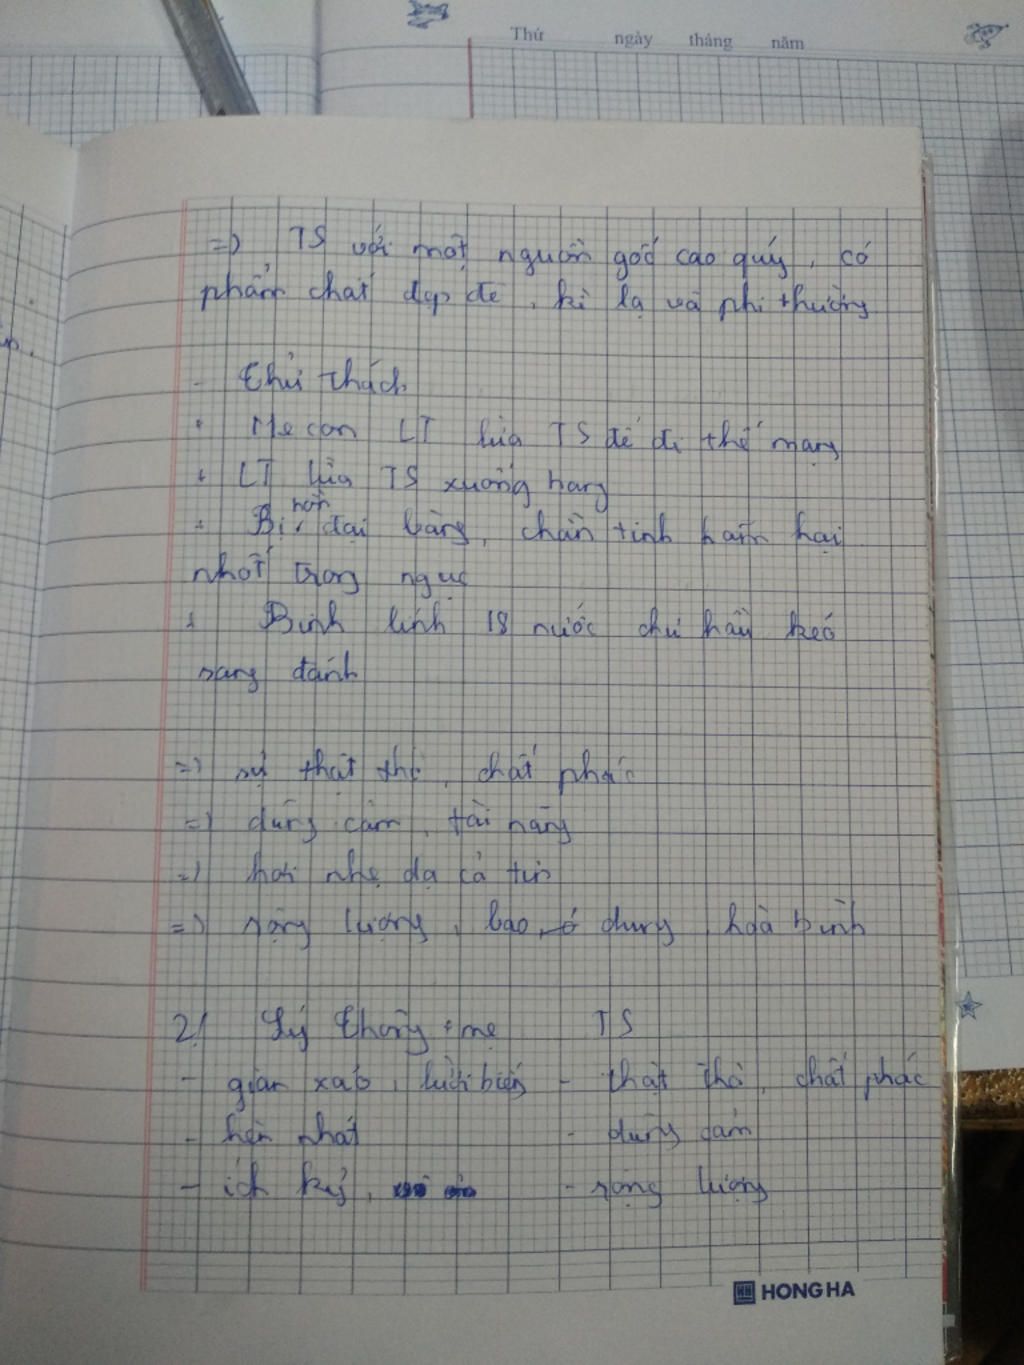 Thứ ngày tháng năm
=) TS với một nguồn gốc cao quý, có
phẩm chất đẹp đẽ, kì lạ và phi thường
- Thử thách
+ Mẹ con LT lừa TS để đi thế mạng
+ LT lừa TS xuống hang
+ Bị hồn đại bàng, chằn tinh hãm hại
nhốt trong ngục
+ Binh lính 18 nước chư hầu kéo
sang đánh
=) sự thật thà, chất phác
=) dũng cảm, tài năng
=) hơi nhẹ dạ cả tin
=) rộng lượng, bao dung, hoà bình
2/ Lý Thông + mẹ TS
- gian xảo, lười biếng - thật thà, chất phác
- hèn nhát - dũng cảm
- ích kỷ, - rộng lượng
HONG HA